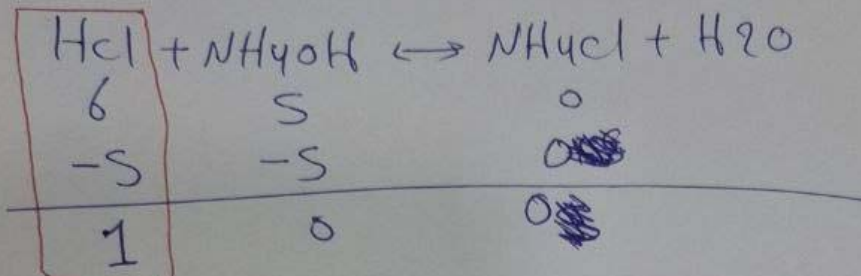 Hcl + NH4OH ↔ NH4cl + H2O
6 5 0
-5 -5 0
1 0 0